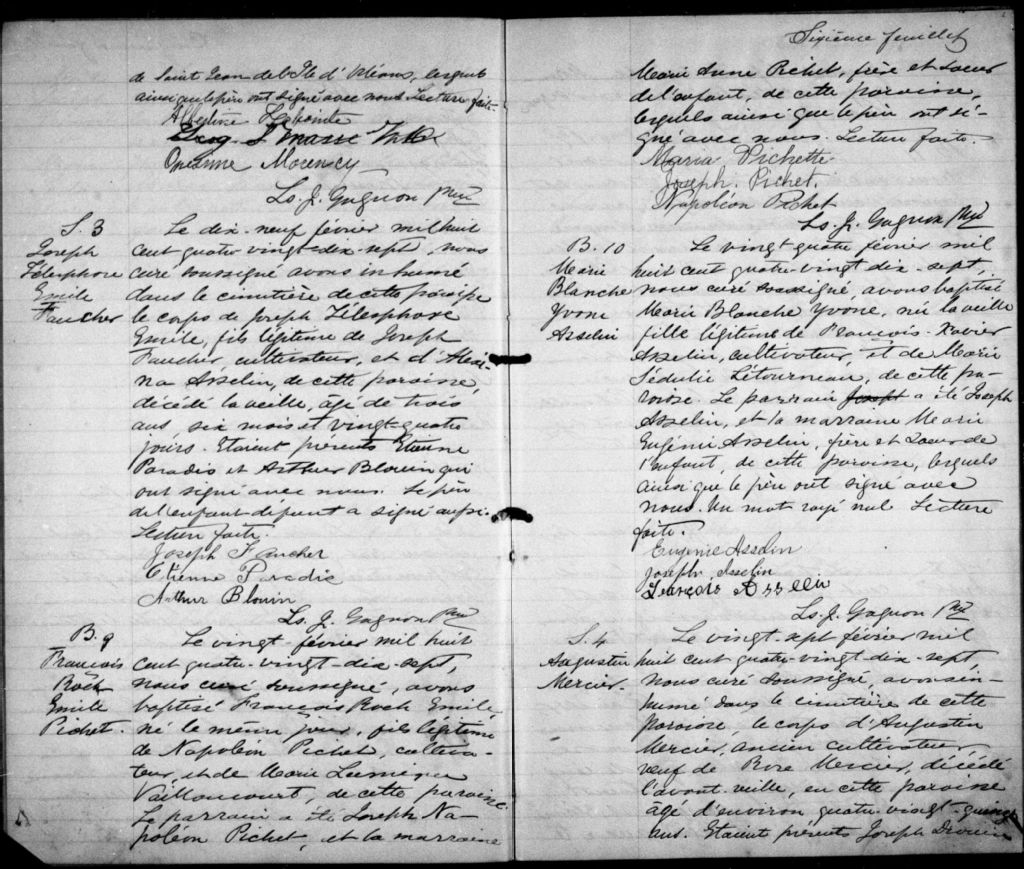 de Saint Jean de l'Ile d'Orléans, lesquels
ainsi que le père ont signé avec nous. Lecture faite.
Morency
Ls. J. Gagnon Ptre
S. 3
Joseph
Télesphore
Emile
Faucher
Le dix-neuf février mil huit
cent quatre-vingt-dix-sept, nous
curé soussigné avons inhumé
dans le cimetière de cette paroisse
le corps de Joseph Télesphore
Emile, fils légitime de Joseph
Faucher, cultivateur, et d'Alexi-
na Asselin, de cette paroisse,
décédé la veille, âgé de trois
ans six mois et vingt-quatre
jours. Etaient présents Etienne
Paradis et Arthur Blouin qui
ont signé avec nous. Le père
de l'enfant defunt a signé aussi.
Lecture faite.
Joseph Faucher
Etienne Paradis
Arthur Blouin
Ls. J. Gagnon Ptre
B. 9
Francois
Roch
Emile
Pichet.
Le vingt-février mil huit
cent quatre-vingt-dix-sept,
nous curé soussigné, avons
baptisé François Roch Emile,
né le même jour, fils légitime
de Napoléon Pichet, cultiva-
teur, et de Marie
Vaillancourt, de cette paroisse.
Le parrain a été Joseph Na-
poléon Pichet, et la marraine
Sixième feuillet
Marie Anne Pichet, frère et soeur
de l'enfant, de cette paroisse,
lesquels ainsi que le père ont si-
gné avec nous. Lecture faite.
Maria Pichette
Joseph. Pichet.
Napoléon Pichet
Ls. J. Gagnon Ptre
B. 10
Marie
Blanche
Yvone
Asselin
Le vingt-quatre février mil
huit cent quatre-vingt dix-sept,
nous curé soussigné, avons baptisé
Marie Blanche Yvone, née la veille
fille légitime de Francois-Xavier
Asselin, cultivateur, et de Marie
Sédulie Létourneau, de cette pa-
roisse. Le parrain Joseph a été Joseph
Asselin, et la marraine Marie
Eugénie Asselin, frère et soeur de
l'enfant, de cette paroisse, lesquels
ainsi que le père ont signé avec
nous. Un mot rayé nul. Lecture
faite.
Eugenie Asselin
Joseph Asselin
François Asselin
Ls. J. Gagnon Ptre
S. 4
Augustin
Mercier.
Le vingt-sept février mil
huit cent quatre-vingt-dix-sept,
nous curé soussigné, avons in-
humé dans le cimetière de cette
paroisse, le corps d'Augustin
Mercier, ancien cultivateur,
veuf de Rose Mercier, décédé
l'avant-veille, en cette paroisse
âgé d'environ quatre-vingt-quinze
ans. Etaient présents Joseph